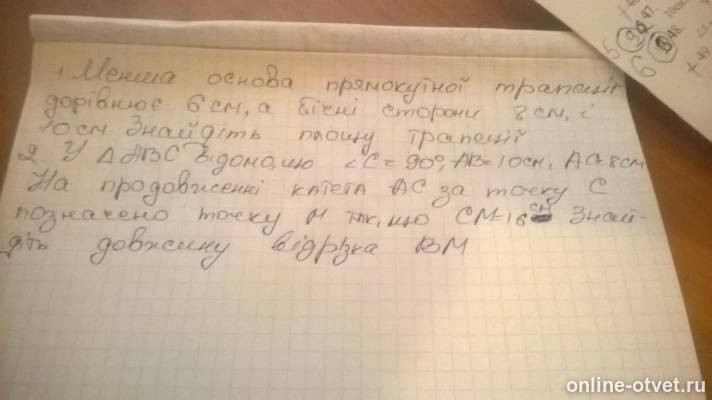 1. Менша основа прямокутної трапеції
дорівнює 6 см, а бічні сторони 8 см, і
10 см Знайдіть площу трапеції
2. У △ ABC відомо, що ∠C = 90°, AB = 10 см, AC = 8 см
На продовженні катета AC за точку C
позначено точку M так, що CM = 16 см Знай-
діть довжину відрізка BM
online-otvet.ru
5
6
47.
48
+ 49